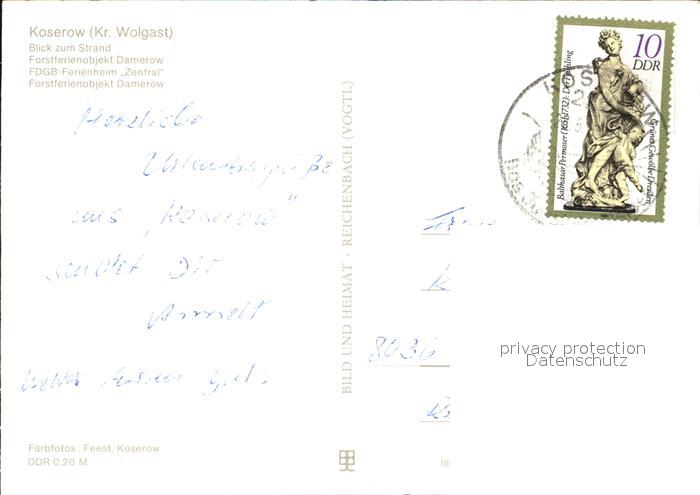 Koserow (Kr. Wolgast)
Blick zum Strand
Forstferienobjekt Damerow
FDGB-Ferienheim „Zentral"
Forstferienobjekt Damerow
Herzliche
Urlaubsgrüße
aus „Koserow"
sendet Dir
gut.
Farbfotos: Feest, Koserow
DDR 0,20 M
BILD UND HEIMAT · REICHENBACH (VOGTL)
10
DDR
Balthasar Permoser (1651-1732): Der Frühling
Grünes Gewölbe Dresden
8036
privacy protection
Datenschutz
III